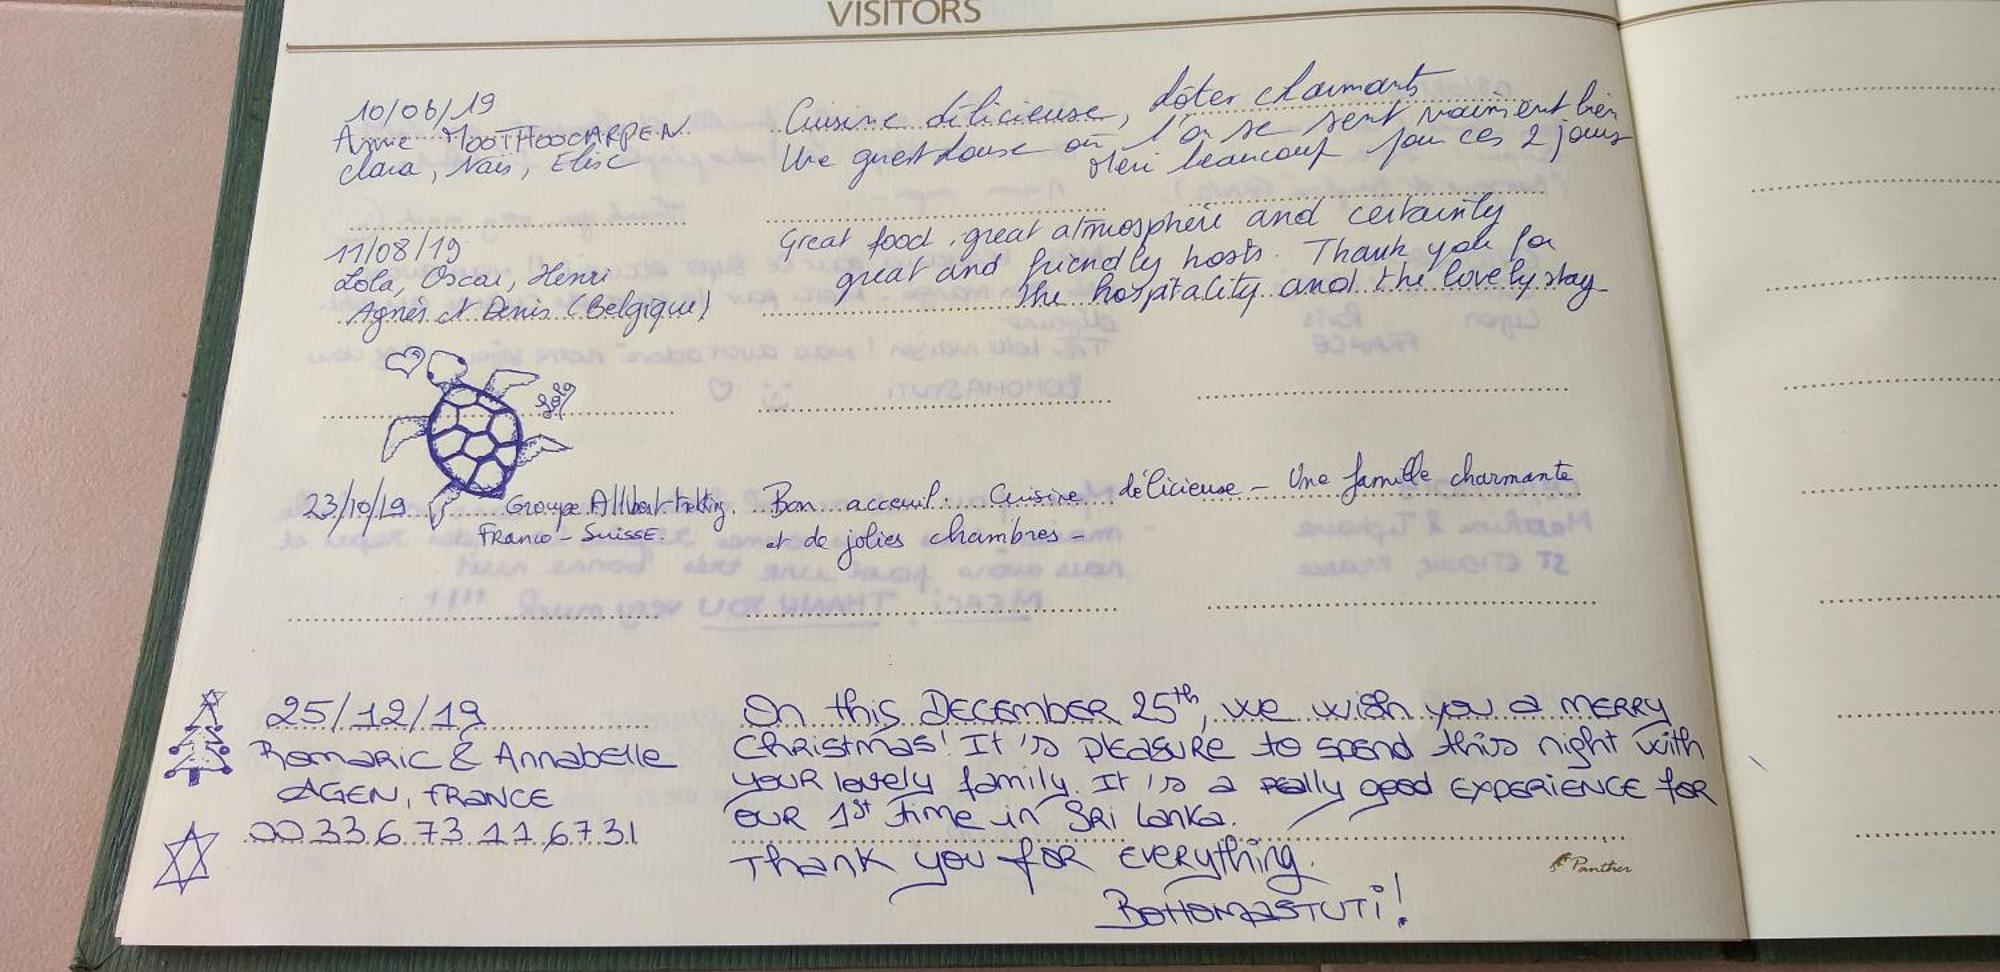 VISITORS
10/08/19
Annie MOOTHOOCARPEN
Clara, Naïs, Elise
Cuisine délicieuse, hôtes charmants
Une guesthouse où l'on se sent vraiment bien
Merci beaucoup pour ces 2 jours
11/08/19
Lola, Oscar, Henri
Agnès et Denis (Belgique)
Great food, great atmosphere and certainty
great and friendly hosts. Thank you for
the hospitality and the lovely stay
Lola
23/10/19 Groupe Allibert-trekking.
Franco-Suisse.
Bon acceuil. Cuisine délicieuse - Une famille charmante
et de jolies chambres -
25/12/19
Romaric & Annabelle
AGEN, FRANCE
00 33 6 73 11 67 31
On this DECEMBER 25th, we wish you a MERRY
Christmas! It's pleasure to spend this night with
your lovely family. It's a really good experience for
our 1st time in Sri Lanka.
Thank you for everything.
BOHOMASTUTI!
Panther